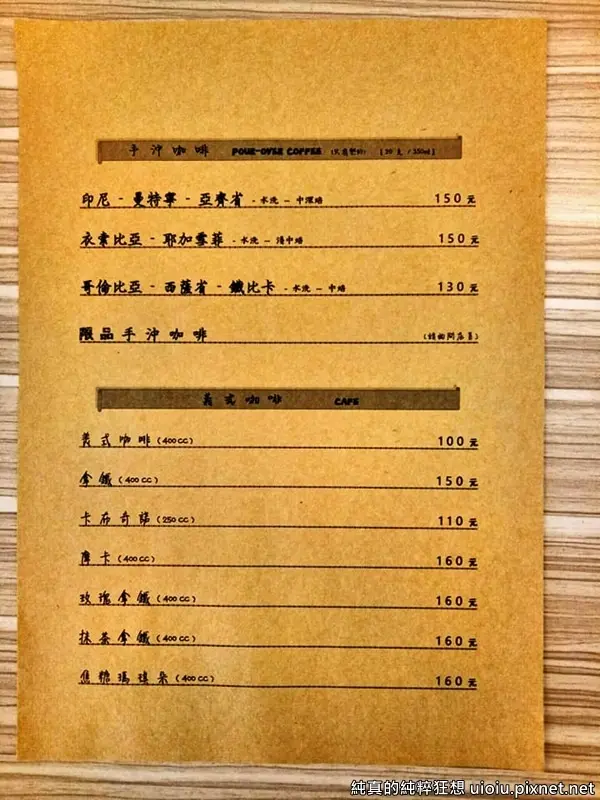 手沖咖啡 POUR-OVER COFFEE (只有熱的) [20克/350ml]
印尼 - 曼特寧 - 亞齊省 - 水洗 - 中深焙 150元
衣索比亞 - 耶加雪菲 - 水洗 - 淺中焙 150元
哥倫比亞 - 西薩省 - 鐵比卡 - 水洗 - 中焙 130元
限品手沖咖啡 (請詢問店員)
義式咖啡 CAFE
美式咖啡(400CC) 100元
拿鐵(400CC) 150元
卡布奇諾(250CC) 110元
摩卡(400CC) 160元
玫瑰拿鐵(400CC) 160元
抹茶拿鐵(400CC) 160元
焦糖瑪琪朵(400CC) 160元
純真的純粹狂想 uioiu.pixnet.net